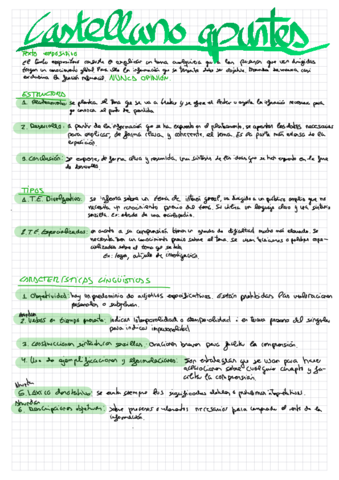 Castellano apuntes
TEXTO EXPOSITIVO
El texto expositivo consiste en explicar un tema cualquiera para las personas que van dirigidas
tengan un conocimiento global. Para ello la información que se presenta debe ser objetiva.
exclusiva la función informat. NUNCA OPINIÓN
ESTRUCTURA
1. Planteamiento: se plantea el tema que se va a tratar y se ofrece al lector u oyente la información necesaria para
que conozca el punto de partida
2. Desarrollo: A partir de la información que se ha expuesto en el planteamiento, se aportan los datos necesarios
para explicar, de forma clara, y coherente, el tema. Es la parte más extensa de la
exposición.
3. Conclusión: Se expone, de forma clara y resumida, una síntesis de las ideas que se han expuesto en la fase
de desarrollo.
TIPOS
1. T.E. Divulgativos: se informa sobre un tema de interés general, va dirigido a un público amplio que no
necesita un conocimiento previo del tema. Se utiliza un lenguaje claro y una sintaxis
sencilla. Ex:
2. T.E. Especializados: en cuanto a su comprensión tienen un grado de dificultad mucho más elevado. Se
necesita tener un conocimiento previo sobre el tema. Se usan
especializadas sobre el tema que se trata
Ex: leyes, artículo de investigación.
CARACTERÍSTICAS LINGÜÍSTICAS
1. Objetividad: hay un predominio de adjetivos especificativos. Están prohibidas las valoraciones
personales o subjetivas.
2. Verbos en tiempo presente: indican intemporalidad o atemporalidad; en tercera persona del singular
para indicar impersonalidad.
3. Construcciones sintácticas sencillas: oraciones breves para facilitar la comprensión.
4. Uso de ejemplificaciones y : Son estrategias que se usan para hacer
aclaraciones sobre cualquier concepto y
facilite la comprensión.
5. Léxico denotativo: se evita siempre los significados dobles, o
6. Descripciones objetivas: sobre procesos o elementos necesarios para comprender el resto de la
información.